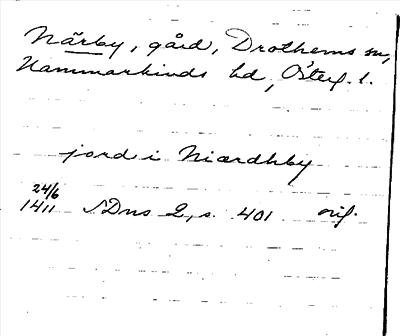 Närby, gård, Drothems sn,
Hammarkinds hd, Österg. l.
jord i Niærdhby
24/6
1411 SDns 2, s. 401 orig.